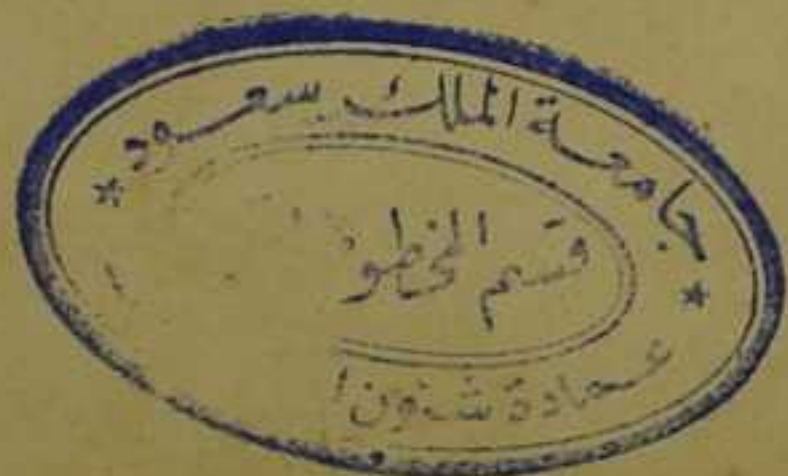 جامعة الملك سعود
قسم
عمادة شئون ا